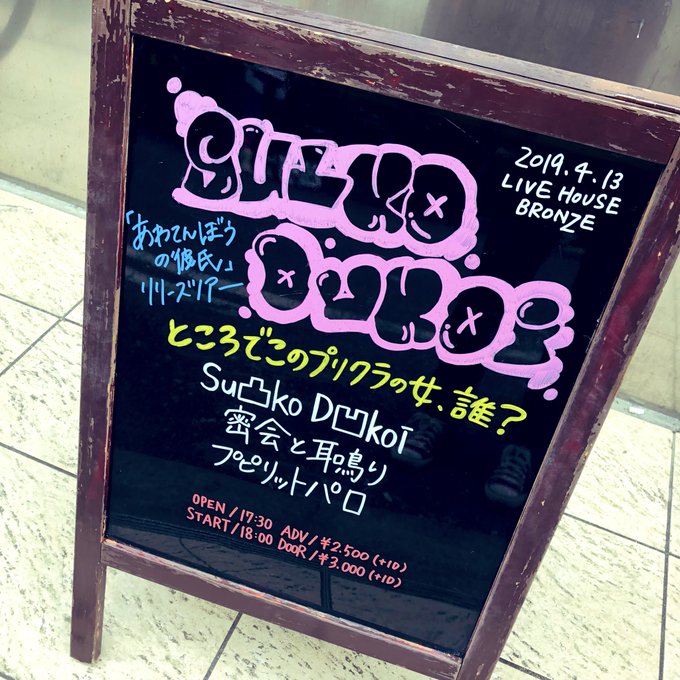 SULKO
DUKOI
2019.4.13
LIVE HOUSE
BRONZE
「あわてんぼう
の彼氏」
リリースツアー
ところでこのプリクラの女、誰?
Su凸ko D凹koi
密会と耳鳴り
プピリットパロ
OPEN/17:30 ADV/¥2.500(+1D)
START/18:00 DOOR/¥3.000(+1D)